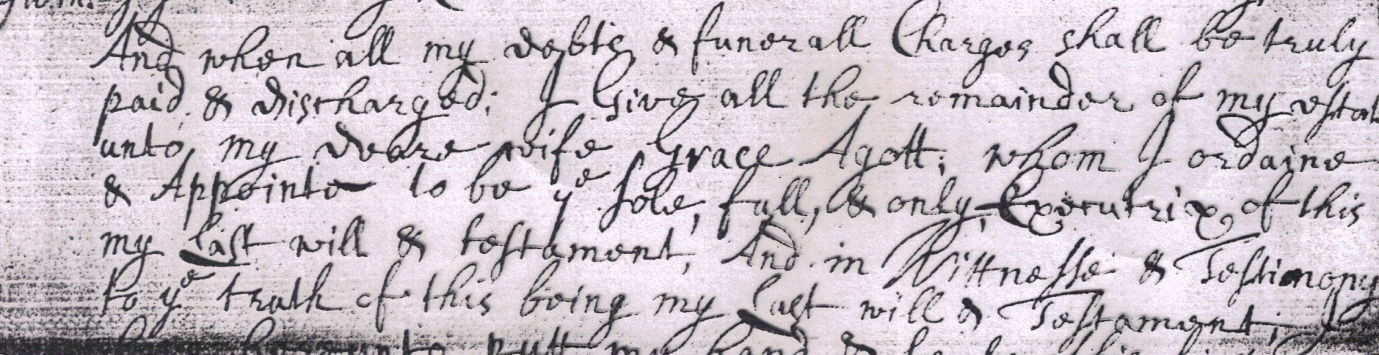 And when all my debts & funerall Charges shall be truly
paid & discharged; I Give all the remainder of my estat
unto my deare wife Grace Agott; whom I ordaine
& Appointe to be ye sole, full, & only, Executrix, of this
my Last will & testament, And in Wittnesse & Testimony
to ye truth of this being my Last will & Testament; I
hereunto putt my hand &